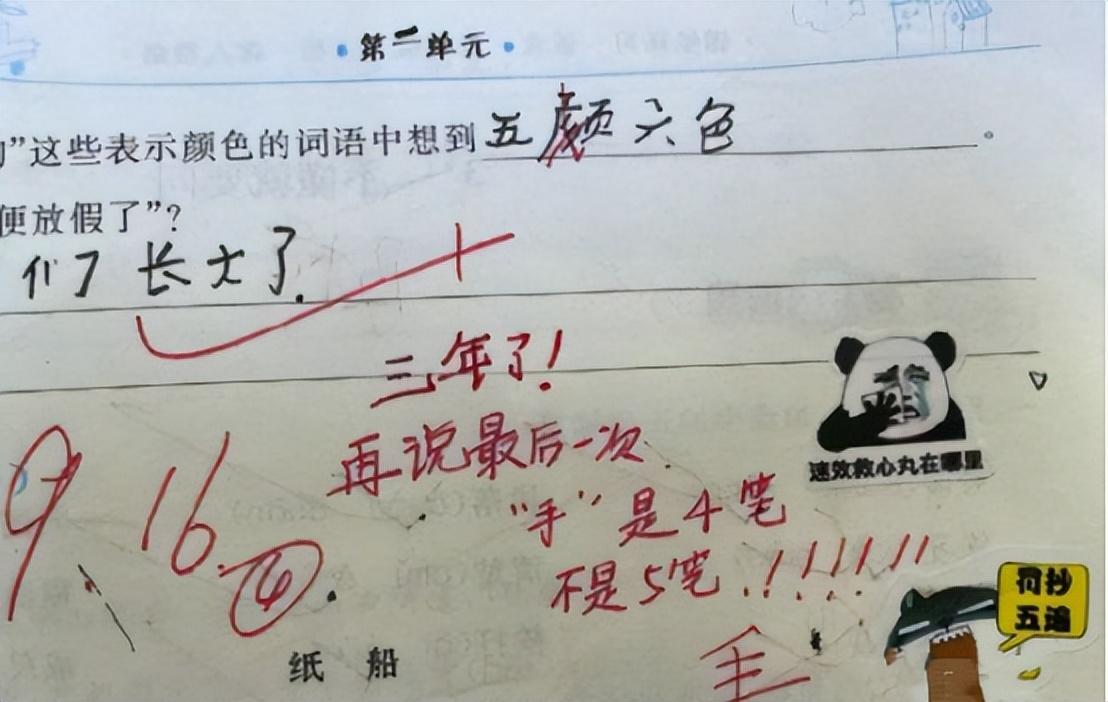 第二单元
”这些表示颜色的词语中想到五颜六色。
便放假了”?
们了长大了.
三年了!
再说最后一次.
速效救心丸在哪里
“手”是4笔
9.16.
不是5笔!!!!!!
罚抄
五遍
纸 船